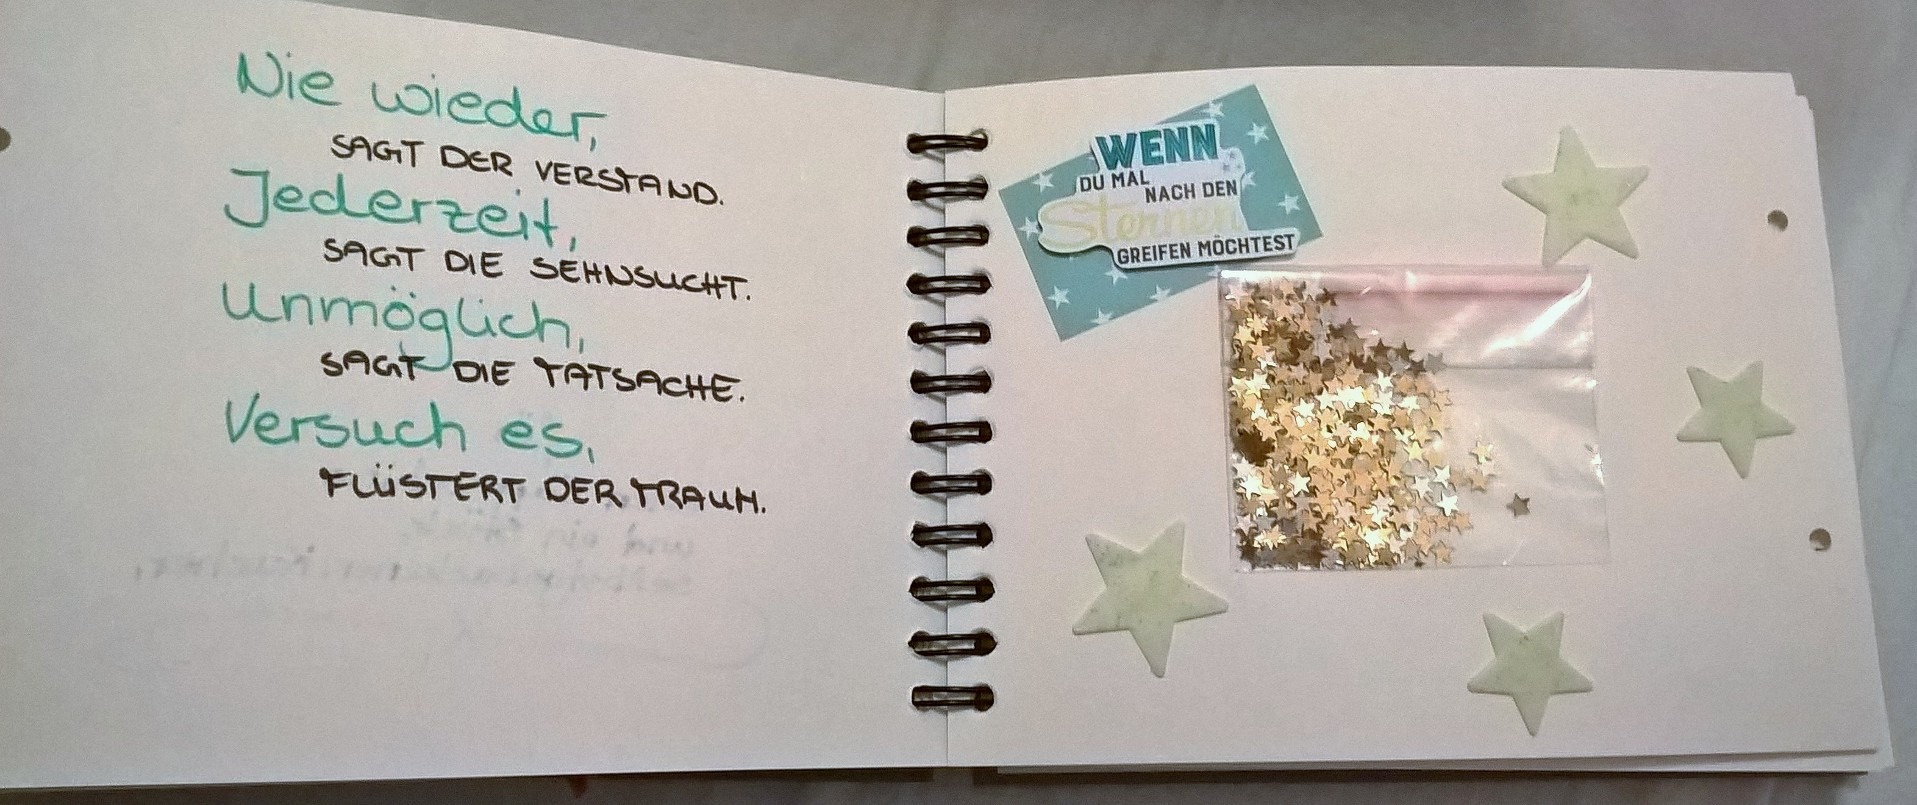 Nie wieder,
SAGT DER VERSTAND.
Jederzeit,
SAGT DIE SEHNSUCHT.
Unmöglich,
SAGT DIE TATSACHE.
Versuch es,
FLÜSTERT DER TRAUM.
WENN
DU MAL
NACH DEN
Sternen
GREIFEN MÖCHTEST